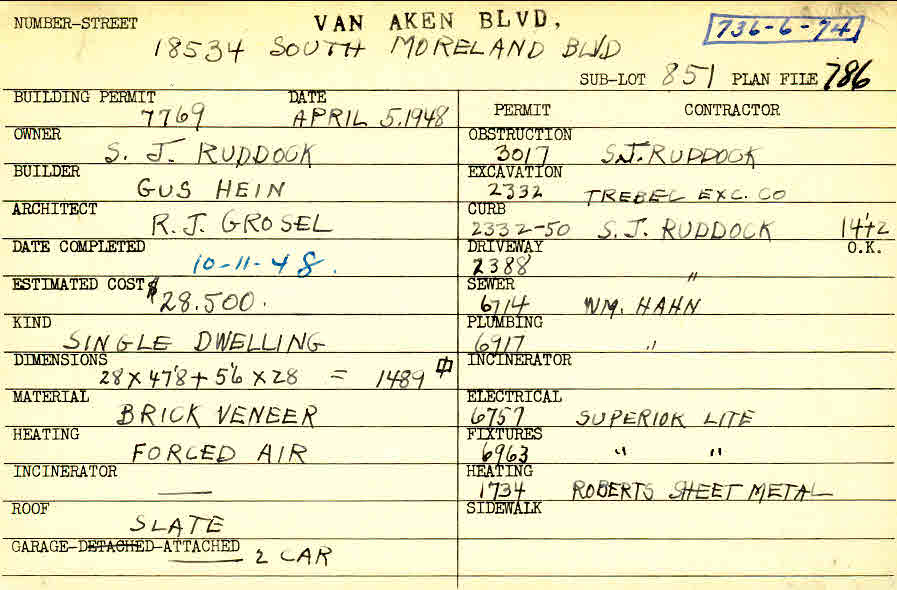 NUMBER-STREET VAN AKEN BLVD, 736-6-74
18534 SOUTH MORELAND BLVD
SUB-LOT 851 PLAN FILE 786
BUILDING PERMIT DATE
7769 APRIL 5.1948
OWNER
S. J. RUDDOCK
BUILDER
GUS HEIN
ARCHITECT
R.J. GROSEL
DATE COMPLETED
10-11-48.
ESTIMATED COST $
28.500.
KIND
SINGLE DWELLING
DIMENSIONS
28 X 47'8 + 5'6 X 28 = 1489
MATERIAL
BRICK VENEER
HEATING
FORCED AIR
INCINERATOR
—
ROOF
SLATE
GARAGE-DETACHED-ATTACHED 2 CAR
PERMIT CONTRACTOR
OBSTRUCTION
3017 S.J. RUDDOCK
EXCAVATION
2332 TREBEC EXC. CO
CURB
2332-50 S. J. RUDDOCK 14'+2
DRIVEWAY O.K.
2388 "
SEWER
6714 WM. HAHN
PLUMBING
6917 "
INCINERATOR
ELECTRICAL
6757 SUPERIOR LITE
FIXTURES
6963 " "
HEATING
1734 ROBERTS SHEET METAL
SIDEWALK